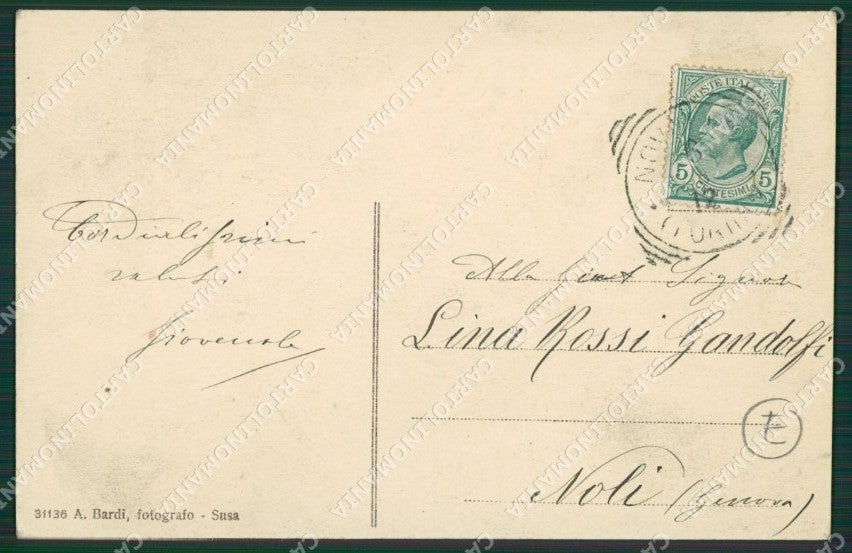 Cordialissimi
saluti
Giovenale
POSTE ITALIANE
5 CENTESIMI 5
Alla Gent Signora
Lina Rossi Gandolfi
Noli (Genova)
E
31136 A. Bardi, fotografo - Susa
CARTOLINOMANIA